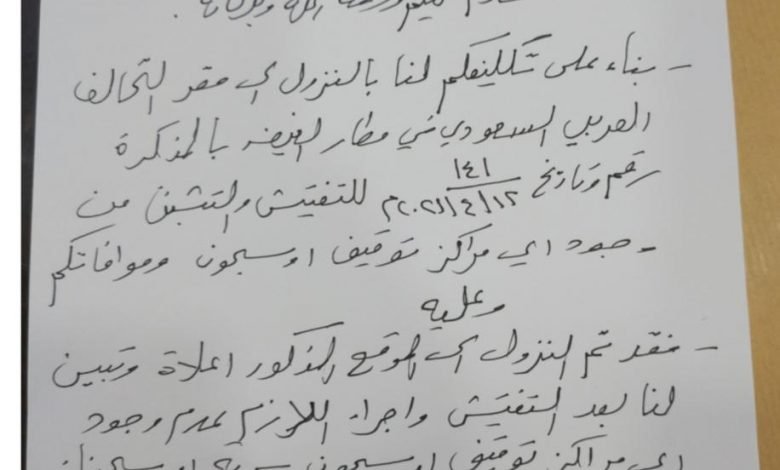 السلام عليكم ورحمة الله وبركاته.
- بناء على تكليفكم لنا بالنزول الى مقر التحالف
العربي السعودي في مطار الغيضه بالمذكرة
رقم وتاريخ ١٤١ / ١٢/٤/٢٠٢١م للتفتيش والتشيق من
- وجود اي مراكز توقيف او سجون وموافاتكم
وعليه
- فقد تم النزول الى الموقع المذكور اعلاة وتبين
لنا بعد التفتيش واجراء اللازم عدم وجود
اي مراكز توقيف او سجون سرية او سجناء